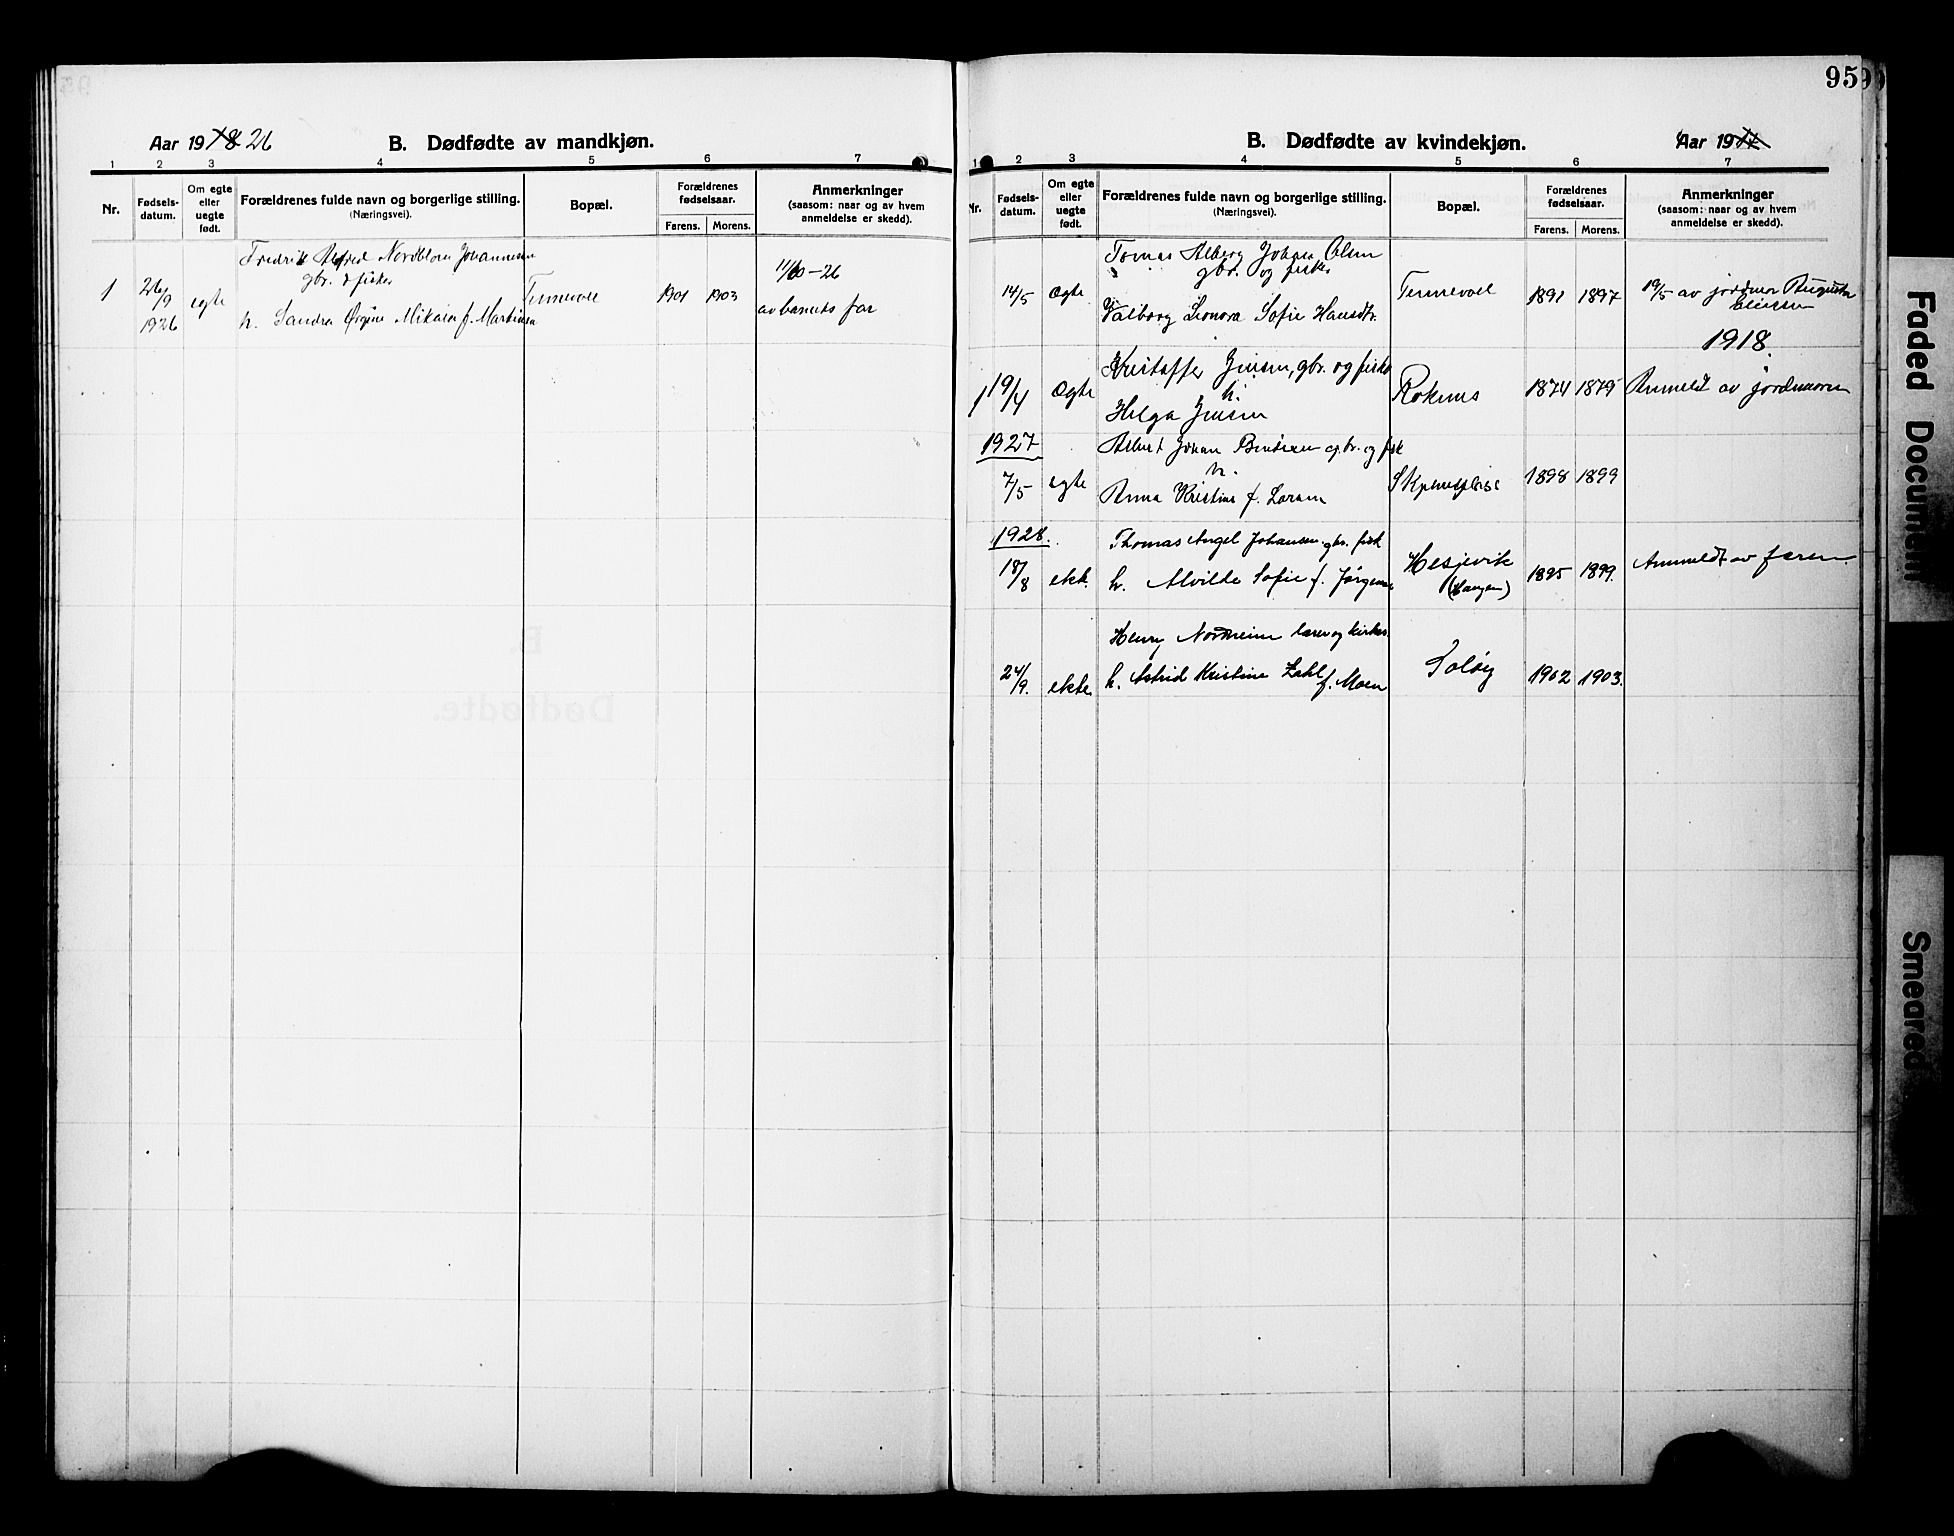 Aar 1918 26
B. Dødfødte av mandkjøn.
1 2 3 4 5 6 7
Nr.
Fødsels-
datum.
Om egte
eller
uegte
født.
Forældrenes fulde navn og borgerlige stilling.
(Næringsvei).
Bopæl.
Forældrenes
fødselsaar.
Farens. Morens.
Anmerkninger
(saasom: naar og av hvem
anmeldelse er skedd).
1
26/9
1926
egte
Fredrik Alfred Nordblom Johannesen
gbr. & fisker
h. Sandra Mikaia f. Martinsen
Tennevoll
1901 1903
11/10-26
av barnets far
95
B. Dødfødte av kvindekjøn.
Aar 19
1 2 3 4 5 6 7
Nr.
Fødsels-
datum.
Om egte
eller
uegte
født.
Forældrenes fulde navn og borgerlige stilling.
(Næringsvei).
Bopæl.
Forældrenes
fødselsaar.
Farens. Morens.
Anmerkninger
(saasom: naar og av hvem
anmeldelse er skedd).
14/5 Egte
Tomas Alberg Johan Olsen
gbr. og fisker
Valborg Leonora Sofie Hansdtr.
Tennevoll
1891 1897
19/5 av jordmor Augusta
1918.
1 19/4 Egte
Kristoffer Jensen, gbr. og fisker
h.
Helga Jensen
Rokenes
1874 1875
Anmeldt av jordmoren
1927
7/5 egte
Albert Johan Bentsen gbr. og fisk
h.
Anna Kristine f. Larsen
1898 1899
1928.
18/8 ekte.
Thomas Angel Johansen gbr. fisk
h. Alvilde Sofie f. Jørgensen
Hesjevik
(Haugen)
1895 1899.
Anmeldt av faren.
24/9. ekte
Henry Nordheim lærer og kirkes.
h. Astrid Kristine Zahl f. Moen
Soløy
1902 1903.
Faded Document
Smeared